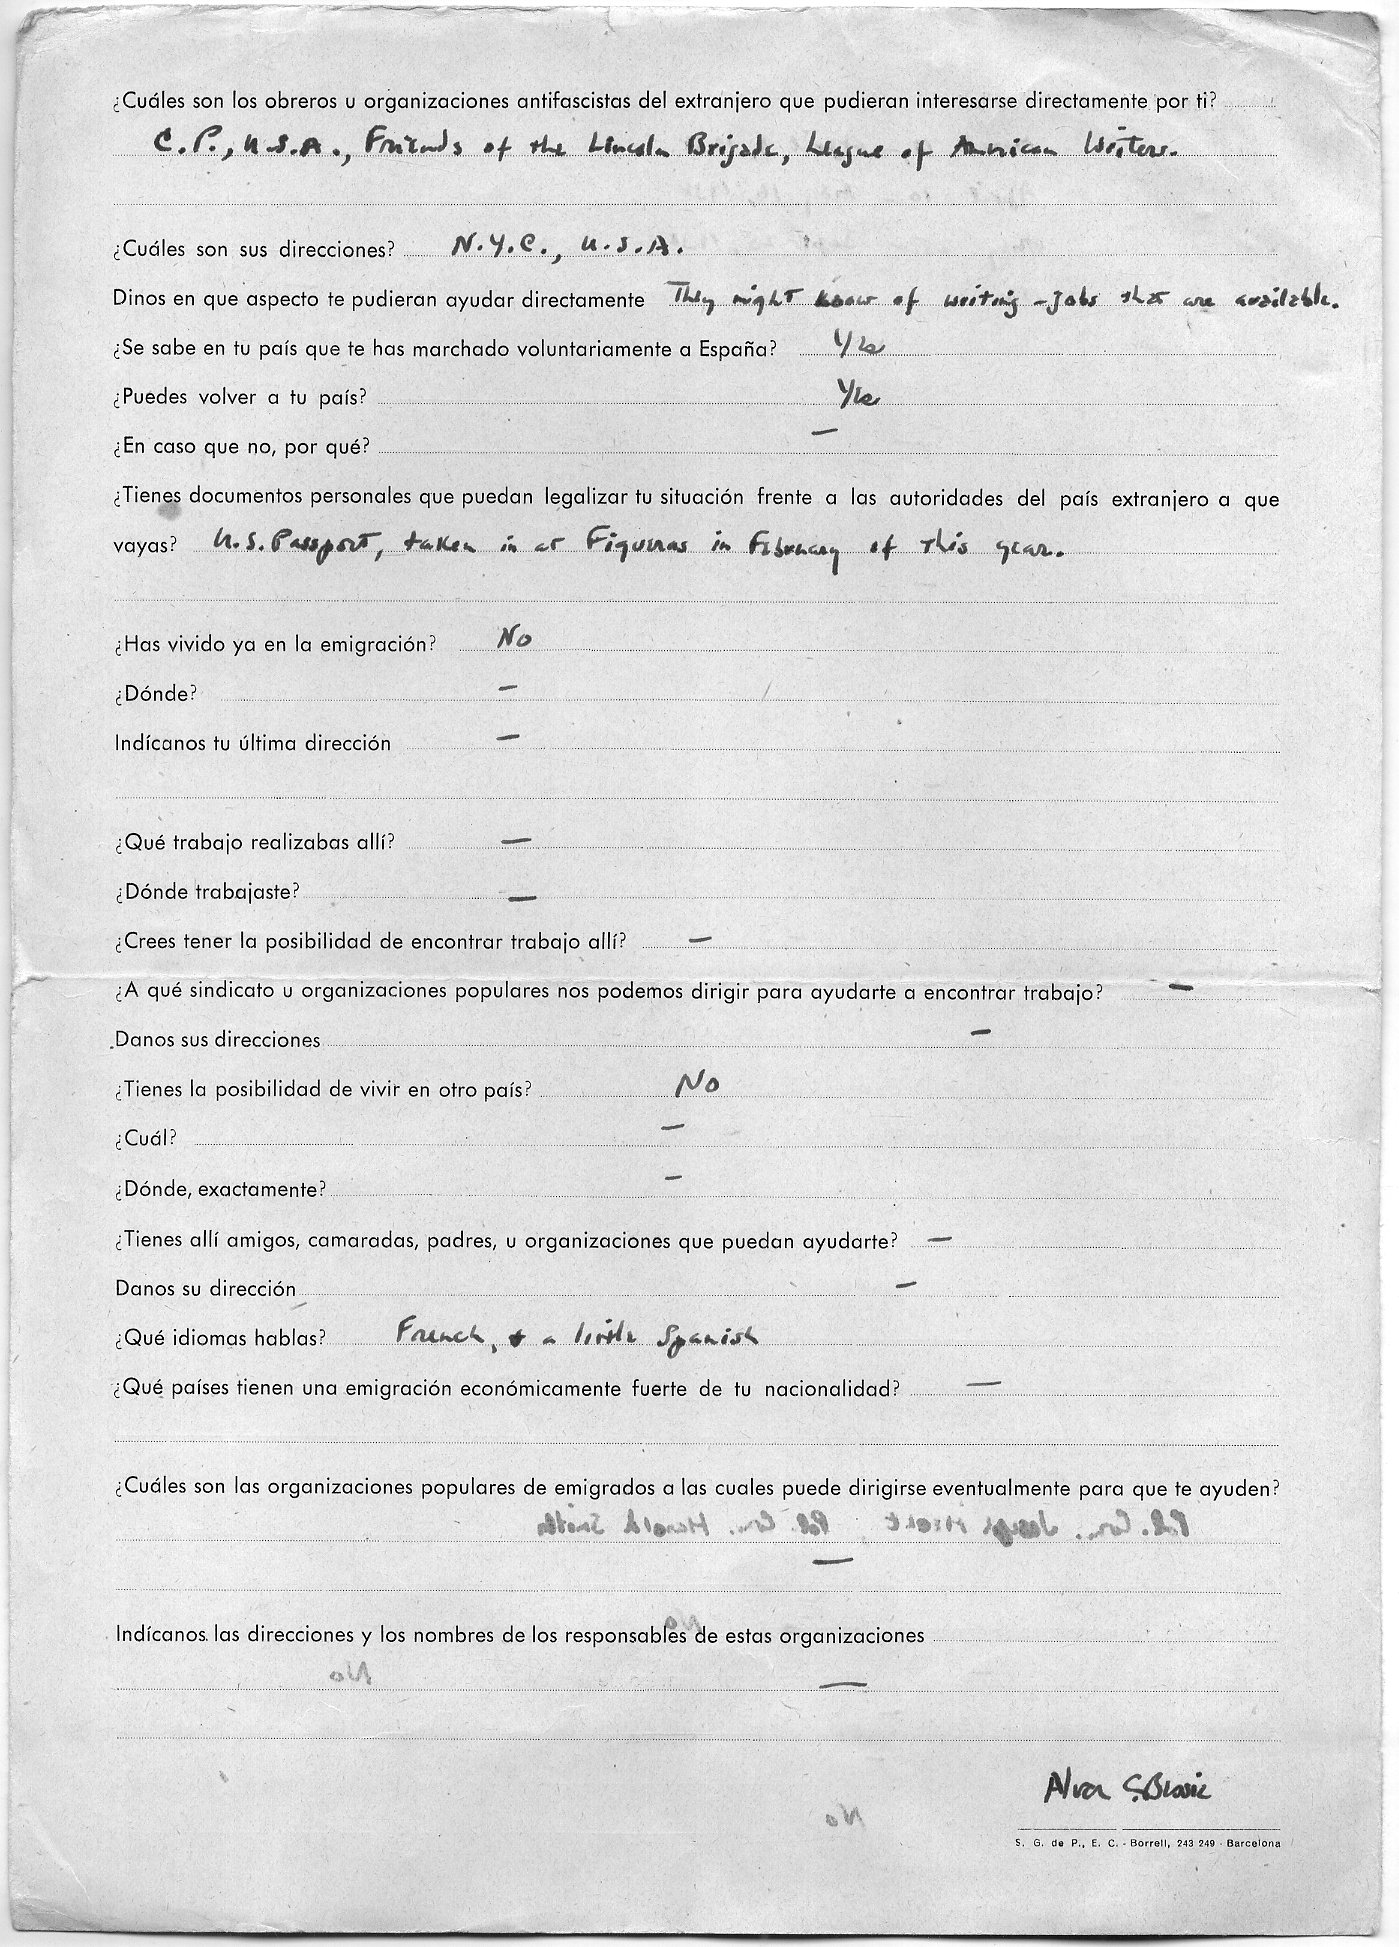 ¿Cuáles son los obreros u organizaciones antifascistas del extranjero que pudieran interesarse directamente por ti?
C.P., U.S.A., Friends of the Lincoln Brigade, League of American Writers.
¿Cuáles son sus direcciones? N.Y.C., U.S.A.
Dinos en que aspecto te pudieran ayudar directamente They might know of writing-jobs that are available.
¿Se sabe en tu país que te has marchado voluntariamente a España? Yes
¿Puedes volver a tu país? Yes
¿En caso que no, por qué? —
¿Tienes documentos personales que puedan legalizar tu situación frente a las autoridades del país extranjero a que
vayas? U.S. Passport, taken in at Figueras in February of this year.
¿Has vivido ya en la emigración? No
¿Dónde? —
Indícanos tu última dirección —
¿Qué trabajo realizabas allí? —
¿Dónde trabajaste? —
¿Crees tener la posibilidad de encontrar trabajo allí? —
¿A qué sindicato u organizaciones populares nos podemos dirigir para ayudarte a encontrar trabajo? —
Danos sus direcciones —
¿Tienes la posibilidad de vivir en otro país? No
¿Cuál? —
¿Dónde, exactamente? —
¿Tienes allí amigos, camaradas, padres, u organizaciones que puedan ayudarte? —
Danos su dirección —
¿Qué idiomas hablas? French, + a little Spanish
¿Qué países tienen una emigración económicamente fuerte de tu nacionalidad? —
¿Cuáles son las organizaciones populares de emigrados a las cuales puede dirigirse eventualmente para que te ayuden?
—
Indícanos. las direcciones y los nombres de los responsables de estas organizaciones
—
Alva C. Bessie
S. G. de P., E. C. - Borrell, 243 249 - Barcelona